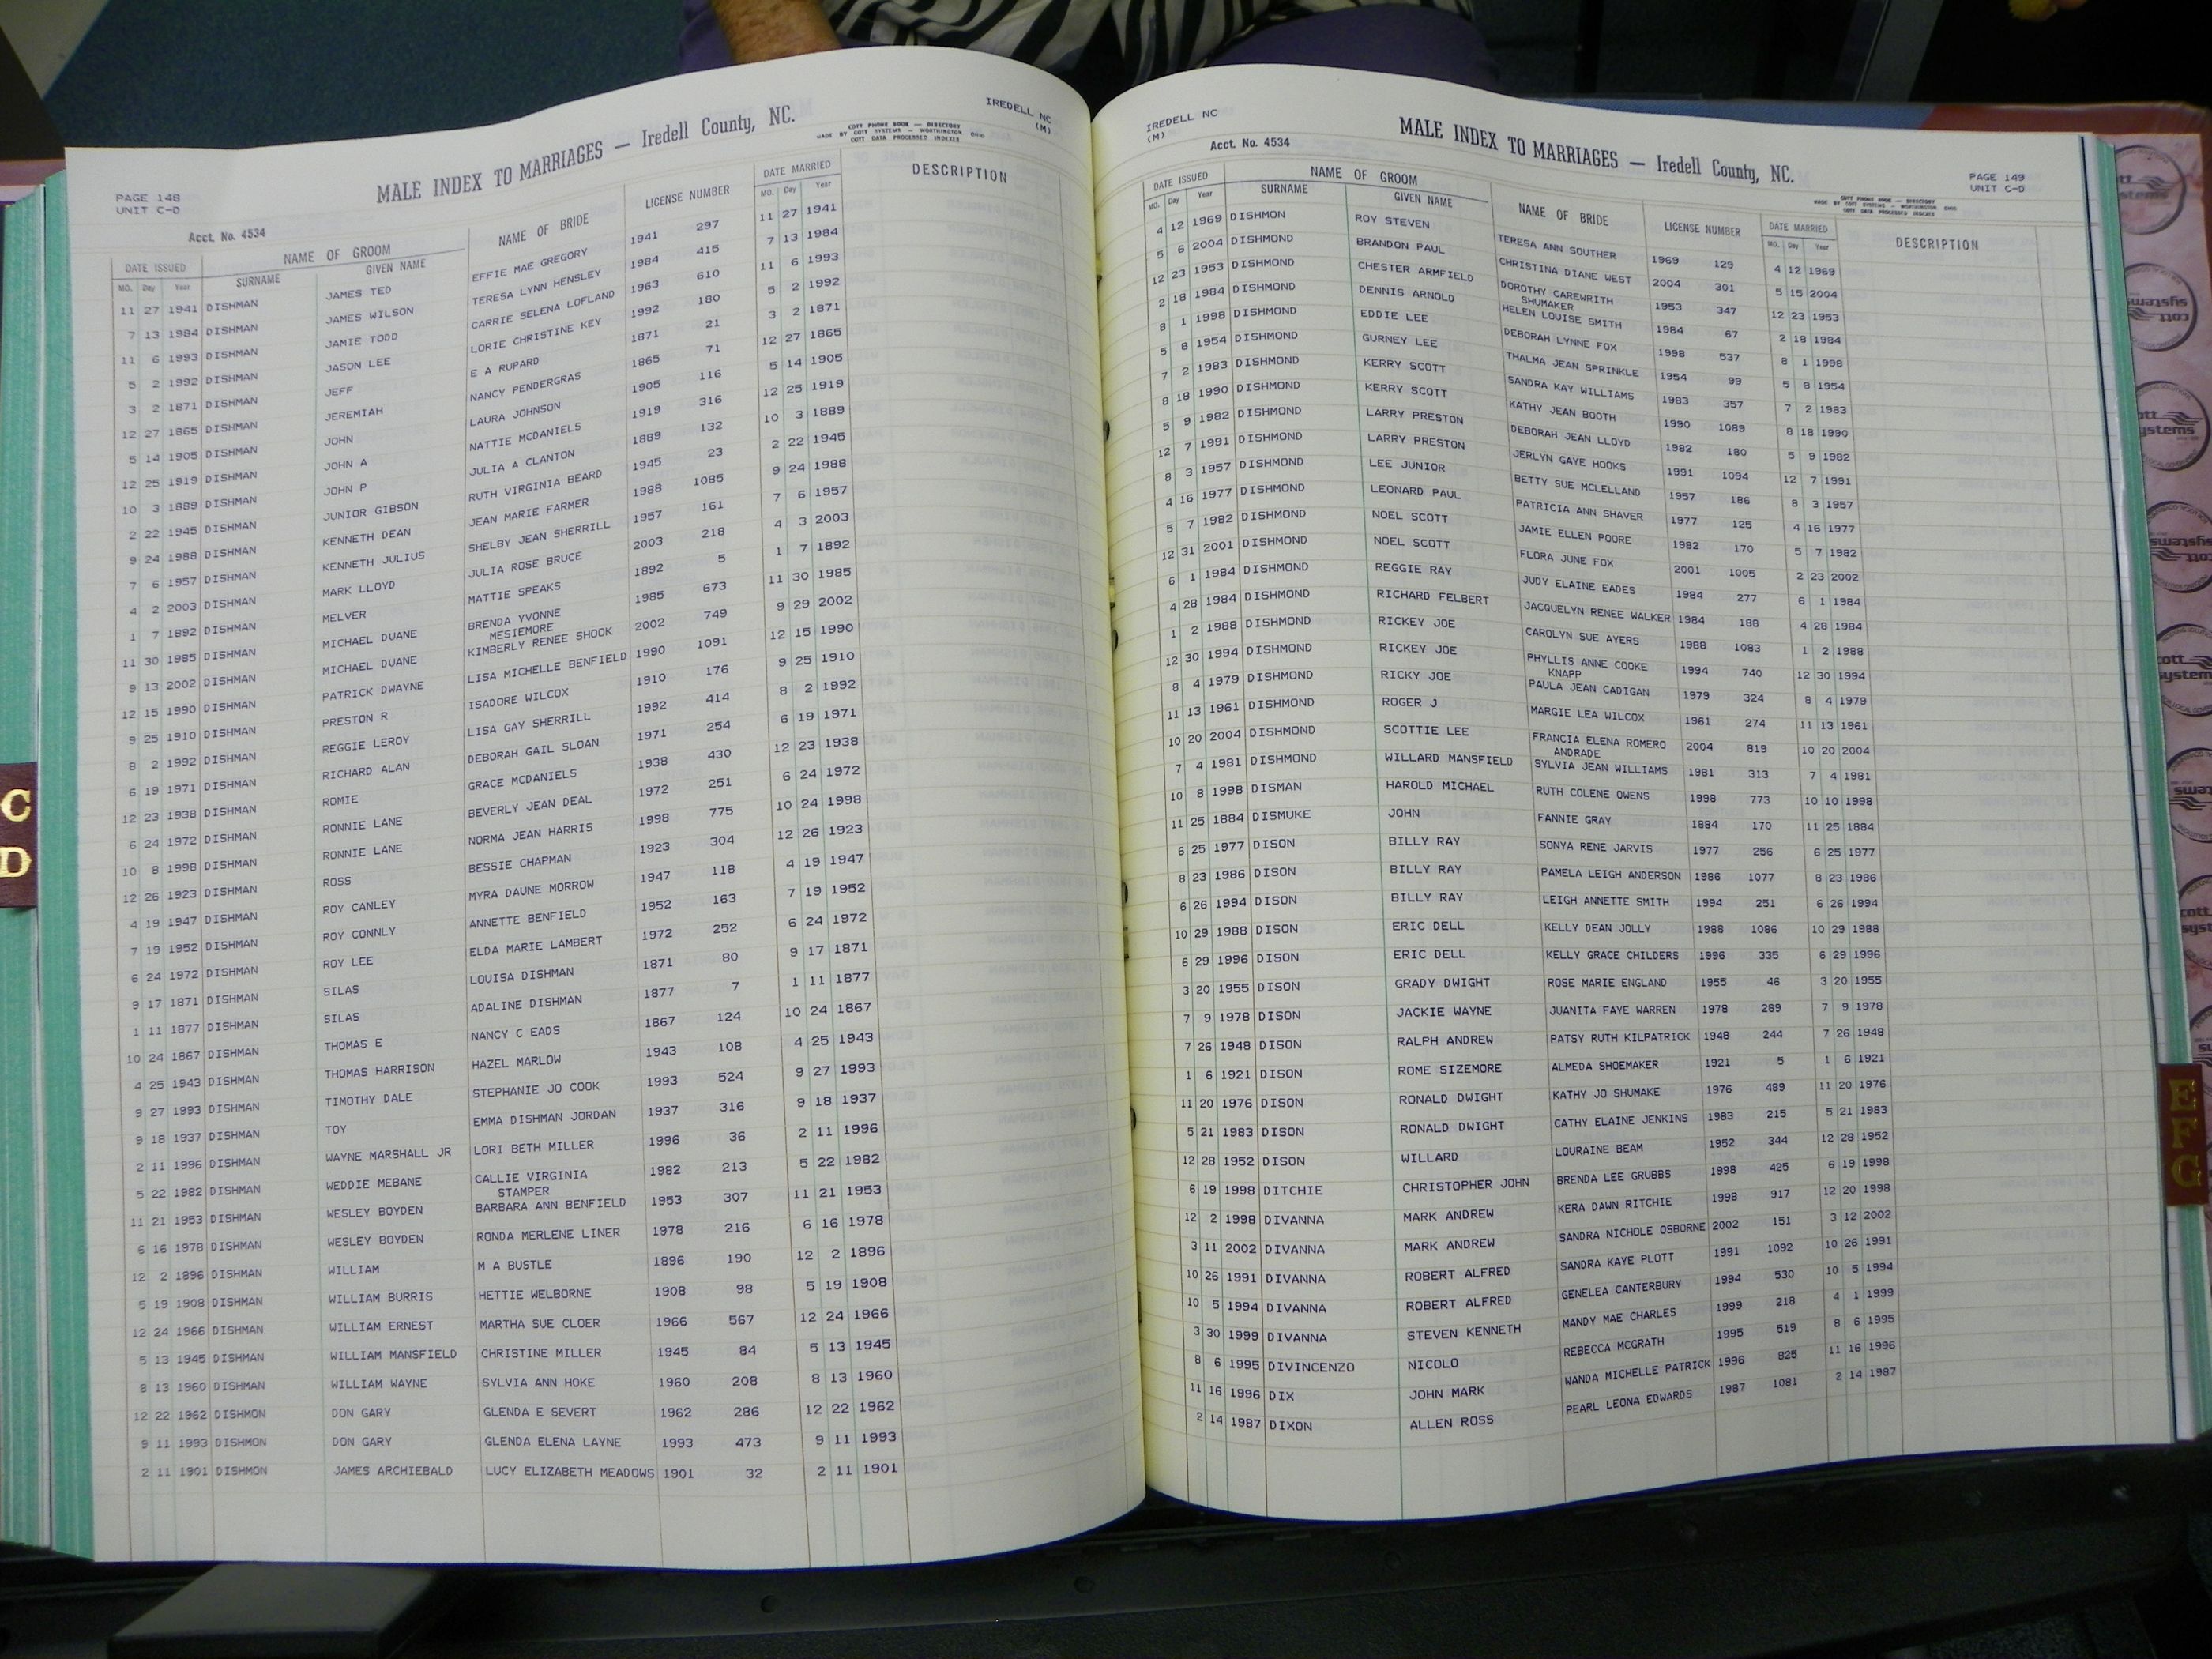 PAGE 148
UNIT C-D
MALE INDEX TO MARRIAGES — Iredell County, NC.
IREDELL NC
(M)
COTT PHONE BOOK — DIRECTORY
MADE BY COTT SYSTEMS — WORTHINGTON OHIO
COTT DATA PROCESSED INDEXES
Acct. No. 4534
DATE ISSUED NAME OF GROOM NAME OF BRIDE LICENSE NUMBER DATE MARRIED DESCRIPTION
MO. Day Year SURNAME GIVEN NAME MO. Day Year
11 27 1941 DISHMAN JAMES TED EFFIE MAE GREGORY 1941 297 11 27 1941
7 13 1984 DISHMAN JAMES WILSON TERESA LYNN HENSLEY 1984 415 7 13 1984
11 6 1993 DISHMAN JAMIE TODD CARRIE SELENA LOFLAND 1963 610 11 6 1993
5 2 1992 DISHMAN JASON LEE LORIE CHRISTINE KEY 1992 180 5 2 1992
3 2 1871 DISHMAN JEFF E A RUPARD 1871 21 3 2 1871
12 27 1865 DISHMAN JEREMIAH NANCY PENDERGRAS 1865 71 12 27 1865
5 14 1905 DISHMAN JOHN LAURA JOHNSON 1905 116 5 14 1905
12 25 1919 DISHMAN JOHN A NATTIE MCDANIELS 1919 316 12 25 1919
10 3 1889 DISHMAN JOHN P JULIA A CLANTON 1889 132 10 3 1889
2 22 1945 DISHMAN JUNIOR GIBSON RUTH VIRGINIA BEARD 1945 23 2 22 1945
9 24 1988 DISHMAN KENNETH DEAN JEAN MARIE FARMER 1988 1085 9 24 1988
7 6 1957 DISHMAN KENNETH JULIUS SHELBY JEAN SHERRILL 1957 161 7 6 1957
4 2 2003 DISHMAN MARK LLOYD JULIA ROSE BRUCE 2003 218 4 3 2003
1 7 1892 DISHMAN MELVER MATTIE SPEAKS 1892 5 1 7 1892
11 30 1985 DISHMAN MICHAEL DUANE BRENDA YVONNE 1985 673 11 30 1985
MESIEMORE
9 13 2002 DISHMAN MICHAEL DUANE KIMBERLY RENEE SHOOK 2002 749 9 29 2002
12 15 1990 DISHMAN PATRICK DWAYNE LISA MICHELLE BENFIELD 1990 1091 12 15 1990
9 25 1910 DISHMAN PRESTON R ISADORE WILCOX 1910 176 9 25 1910
8 2 1992 DISHMAN REGGIE LEROY LISA GAY SHERRILL 1992 414 8 2 1992
6 19 1971 DISHMAN RICHARD ALAN DEBORAH GAIL SLOAN 1971 254 6 19 1971
12 23 1938 DISHMAN ROMIE GRACE MCDANIELS 1938 430 12 23 1938
6 24 1972 DISHMAN RONNIE LANE BEVERLY JEAN DEAL 1972 251 6 24 1972
10 8 1998 DISHMAN RONNIE LANE NORMA JEAN HARRIS 1998 775 10 24 1998
12 26 1923 DISHMAN ROSS BESSIE CHAPMAN 1923 304 12 26 1923
4 19 1947 DISHMAN ROY CANLEY MYRA DAUNE MORROW 1947 118 4 19 1947
7 19 1952 DISHMAN ROY CONNLY ANNETTE BENFIELD 1952 163 7 19 1952
6 24 1972 DISHMAN ROY LEE ELDA MARIE LAMBERT 1972 252 6 24 1972
9 17 1871 DISHMAN SILAS LOUISA DISHMAN 1871 80 9 17 1871
1 11 1877 DISHMAN SILAS ADALINE DISHMAN 1877 7 1 11 1877
10 24 1867 DISHMAN THOMAS E NANCY C EADS 1867 124 10 24 1867
4 25 1943 DISHMAN THOMAS HARRISON HAZEL MARLOW 1943 108 4 25 1943
9 27 1993 DISHMAN TIMOTHY DALE STEPHANIE JO COOK 1993 524 9 27 1993
9 18 1937 DISHMAN TOY EMMA DISHMAN JORDAN 1937 316 9 18 1937
2 11 1996 DISHMAN WAYNE MARSHALL JR LORI BETH MILLER 1996 36 2 11 1996
5 22 1982 DISHMAN WEDDIE MEBANE CALLIE VIRGINIA 1982 213 5 22 1982
STAMPER
11 21 1953 DISHMAN WESLEY BOYDEN BARBARA ANN BENFIELD 1953 307 11 21 1953
6 16 1978 DISHMAN WESLEY BOYDEN RONDA MERLENE LINER 1978 216 6 16 1978
12 2 1896 DISHMAN WILLIAM M A BUSTLE 1896 190 12 2 1896
5 19 1908 DISHMAN WILLIAM BURRIS HETTIE WELBORNE 1908 98 5 19 1908
12 24 1966 DISHMAN WILLIAM ERNEST MARTHA SUE CLOER 1966 567 12 24 1966
5 13 1945 DISHMAN WILLIAM MANSFIELD CHRISTINE MILLER 1945 84 5 13 1945
8 13 1960 DISHMAN WILLIAM WAYNE SYLVIA ANN HOKE 1960 208 8 13 1960
12 22 1962 DISHMON DON GARY GLENDA E SEVERT 1962 286 12 22 1962
9 11 1993 DISHMON DON GARY GLENDA ELENA LAYNE 1993 473 9 11 1993
2 11 1901 DISHMON JAMES ARCHIEBALD LUCY ELIZABETH MEADOWS 1901 32 2 11 1901
C
D
IREDELL NC
(M)
Acct. No. 4534
MALE INDEX TO MARRIAGES — Iredell County, NC.
PAGE 149
UNIT C-D
COTT PHONE BOOK — DIRECTORY
MADE BY COTT SYSTEMS — WORTHINGTON OHIO
COTT DATA PROCESSED INDEXES
DATE ISSUED NAME OF GROOM NAME OF BRIDE LICENSE NUMBER DATE MARRIED DESCRIPTION
MO. Day Year SURNAME GIVEN NAME MO. Day Year
4 12 1969 DISHMON ROY STEVEN TERESA ANN SOUTHER 1969 129 4 12 1969
5 6 2004 DISHMOND BRANDON PAUL CHRISTINA DIANE WEST 2004 301 5 15 2004
12 23 1953 DISHMOND CHESTER ARMFIELD DOROTHY CAREWRITH 1953 347 12 23 1953
SHUMAKER
2 18 1984 DISHMOND DENNIS ARNOLD HELEN LOUISE SMITH 1984 67 2 18 1984
8 1 1998 DISHMOND EDDIE LEE DEBORAH LYNNE FOX 1998 537 8 1 1998
5 8 1954 DISHMOND GURNEY LEE THALMA JEAN SPRINKLE 1954 99 5 8 1954
7 2 1983 DISHMOND KERRY SCOTT SANDRA KAY WILLIAMS 1983 357 7 2 1983
8 18 1990 DISHMOND KERRY SCOTT KATHY JEAN BOOTH 1990 1089 8 18 1990
5 9 1982 DISHMOND LARRY PRESTON DEBORAH JEAN LLOYD 1982 180 5 9 1982
12 7 1991 DISHMOND LARRY PRESTON JERLYN GAYE HOOKS 1991 1094 12 7 1991
8 3 1957 DISHMOND LEE JUNIOR BETTY SUE MCLELLAND 1957 186 8 3 1957
4 16 1977 DISHMOND LEONARD PAUL PATRICIA ANN SHAVER 1977 125 4 16 1977
5 7 1982 DISHMOND NOEL SCOTT JAMIE ELLEN POORE 1982 170 5 7 1982
12 31 2001 DISHMOND NOEL SCOTT FLORA JUNE FOX 2001 1005 2 23 2002
6 1 1984 DISHMOND REGGIE RAY JUDY ELAINE EADES 1984 277 6 1 1984
4 28 1984 DISHMOND RICHARD FELBERT JACQUELYN RENEE WALKER 1984 188 4 28 1984
1 2 1988 DISHMOND RICKEY JOE CAROLYN SUE AYERS 1988 1083 1 2 1988
12 30 1994 DISHMOND RICKEY JOE PHYLLIS ANNE COOKE 1994 740 12 30 1994
KNAPP
8 4 1979 DISHMOND RICKY JOE PAULA JEAN CADIGAN 1979 324 8 4 1979
11 13 1961 DISHMOND ROGER J MARGIE LEA WILCOX 1961 274 11 13 1961
10 20 2004 DISHMOND SCOTTIE LEE FRANCIA ELENA ROMERO 2004 819 10 20 2004
ANDRADE
7 4 1981 DISHMOND WILLARD MANSFIELD SYLVIA JEAN WILLIAMS 1981 313 7 4 1981
10 8 1998 DISMAN HAROLD MICHAEL RUTH COLENE OWENS 1998 773 10 10 1998
11 25 1884 DISMUKE JOHN FANNIE GRAY 1884 170 11 25 1884
6 25 1977 DISON BILLY RAY SONYA RENE JARVIS 1977 256 6 25 1977
8 23 1986 DISON BILLY RAY PAMELA LEIGH ANDERSON 1986 1077 8 23 1986
6 26 1994 DISON BILLY RAY LEIGH ANNETTE SMITH 1994 251 6 26 1994
10 29 1988 DISON ERIC DELL KELLY DEAN JOLLY 1988 1086 10 29 1988
6 29 1996 DISON ERIC DELL KELLY GRACE CHILDERS 1996 335 6 29 1996
3 20 1955 DISON GRADY DWIGHT ROSE MARIE ENGLAND 1955 46 3 20 1955
7 9 1978 DISON JACKIE WAYNE JUANITA FAYE WARREN 1978 289 7 9 1978
7 26 1948 DISON RALPH ANDREW PATSY RUTH KILPATRICK 1948 244 7 26 1948
1 6 1921 DISON ROME SIZEMORE ALMEDA SHOEMAKER 1921 5 1 6 1921
11 20 1976 DISON RONALD DWIGHT KATHY JO SHUMAKE 1976 489 11 20 1976
5 21 1983 DISON RONALD DWIGHT CATHY ELAINE JENKINS 1983 215 5 21 1983
12 28 1952 DISON WILLARD LOURAINE BEAM 1952 344 12 28 1952
6 19 1998 DITCHIE CHRISTOPHER JOHN BRENDA LEE GRUBBS 1998 425 6 19 1998
12 2 1998 DIVANNA MARK ANDREW KERA DAWN RITCHIE 1998 917 12 20 1998
3 11 2002 DIVANNA MARK ANDREW SANDRA NICHOLE OSBORNE 2002 151 3 12 2002
10 26 1991 DIVANNA ROBERT ALFRED SANDRA KAYE PLOTT 1991 1092 10 26 1991
10 5 1994 DIVANNA ROBERT ALFRED GENELEA CANTERBURY 1994 530 10 5 1994
3 30 1999 DIVANNA STEVEN KENNETH MANDY MAE CHARLES 1999 218 4 1 1999
8 6 1995 DIVINCENZO NICOLO REBECCA MCGRATH 1995 519 8 6 1995
11 16 1996 DIX JOHN MARK WANDA MICHELLE PATRICK 1996 825 11 16 1996
2 14 1987 DIXON ALLEN ROSS PEARL LEONA EDWARDS 1987 1081 2 14 1987
E
F
G
cott
systems